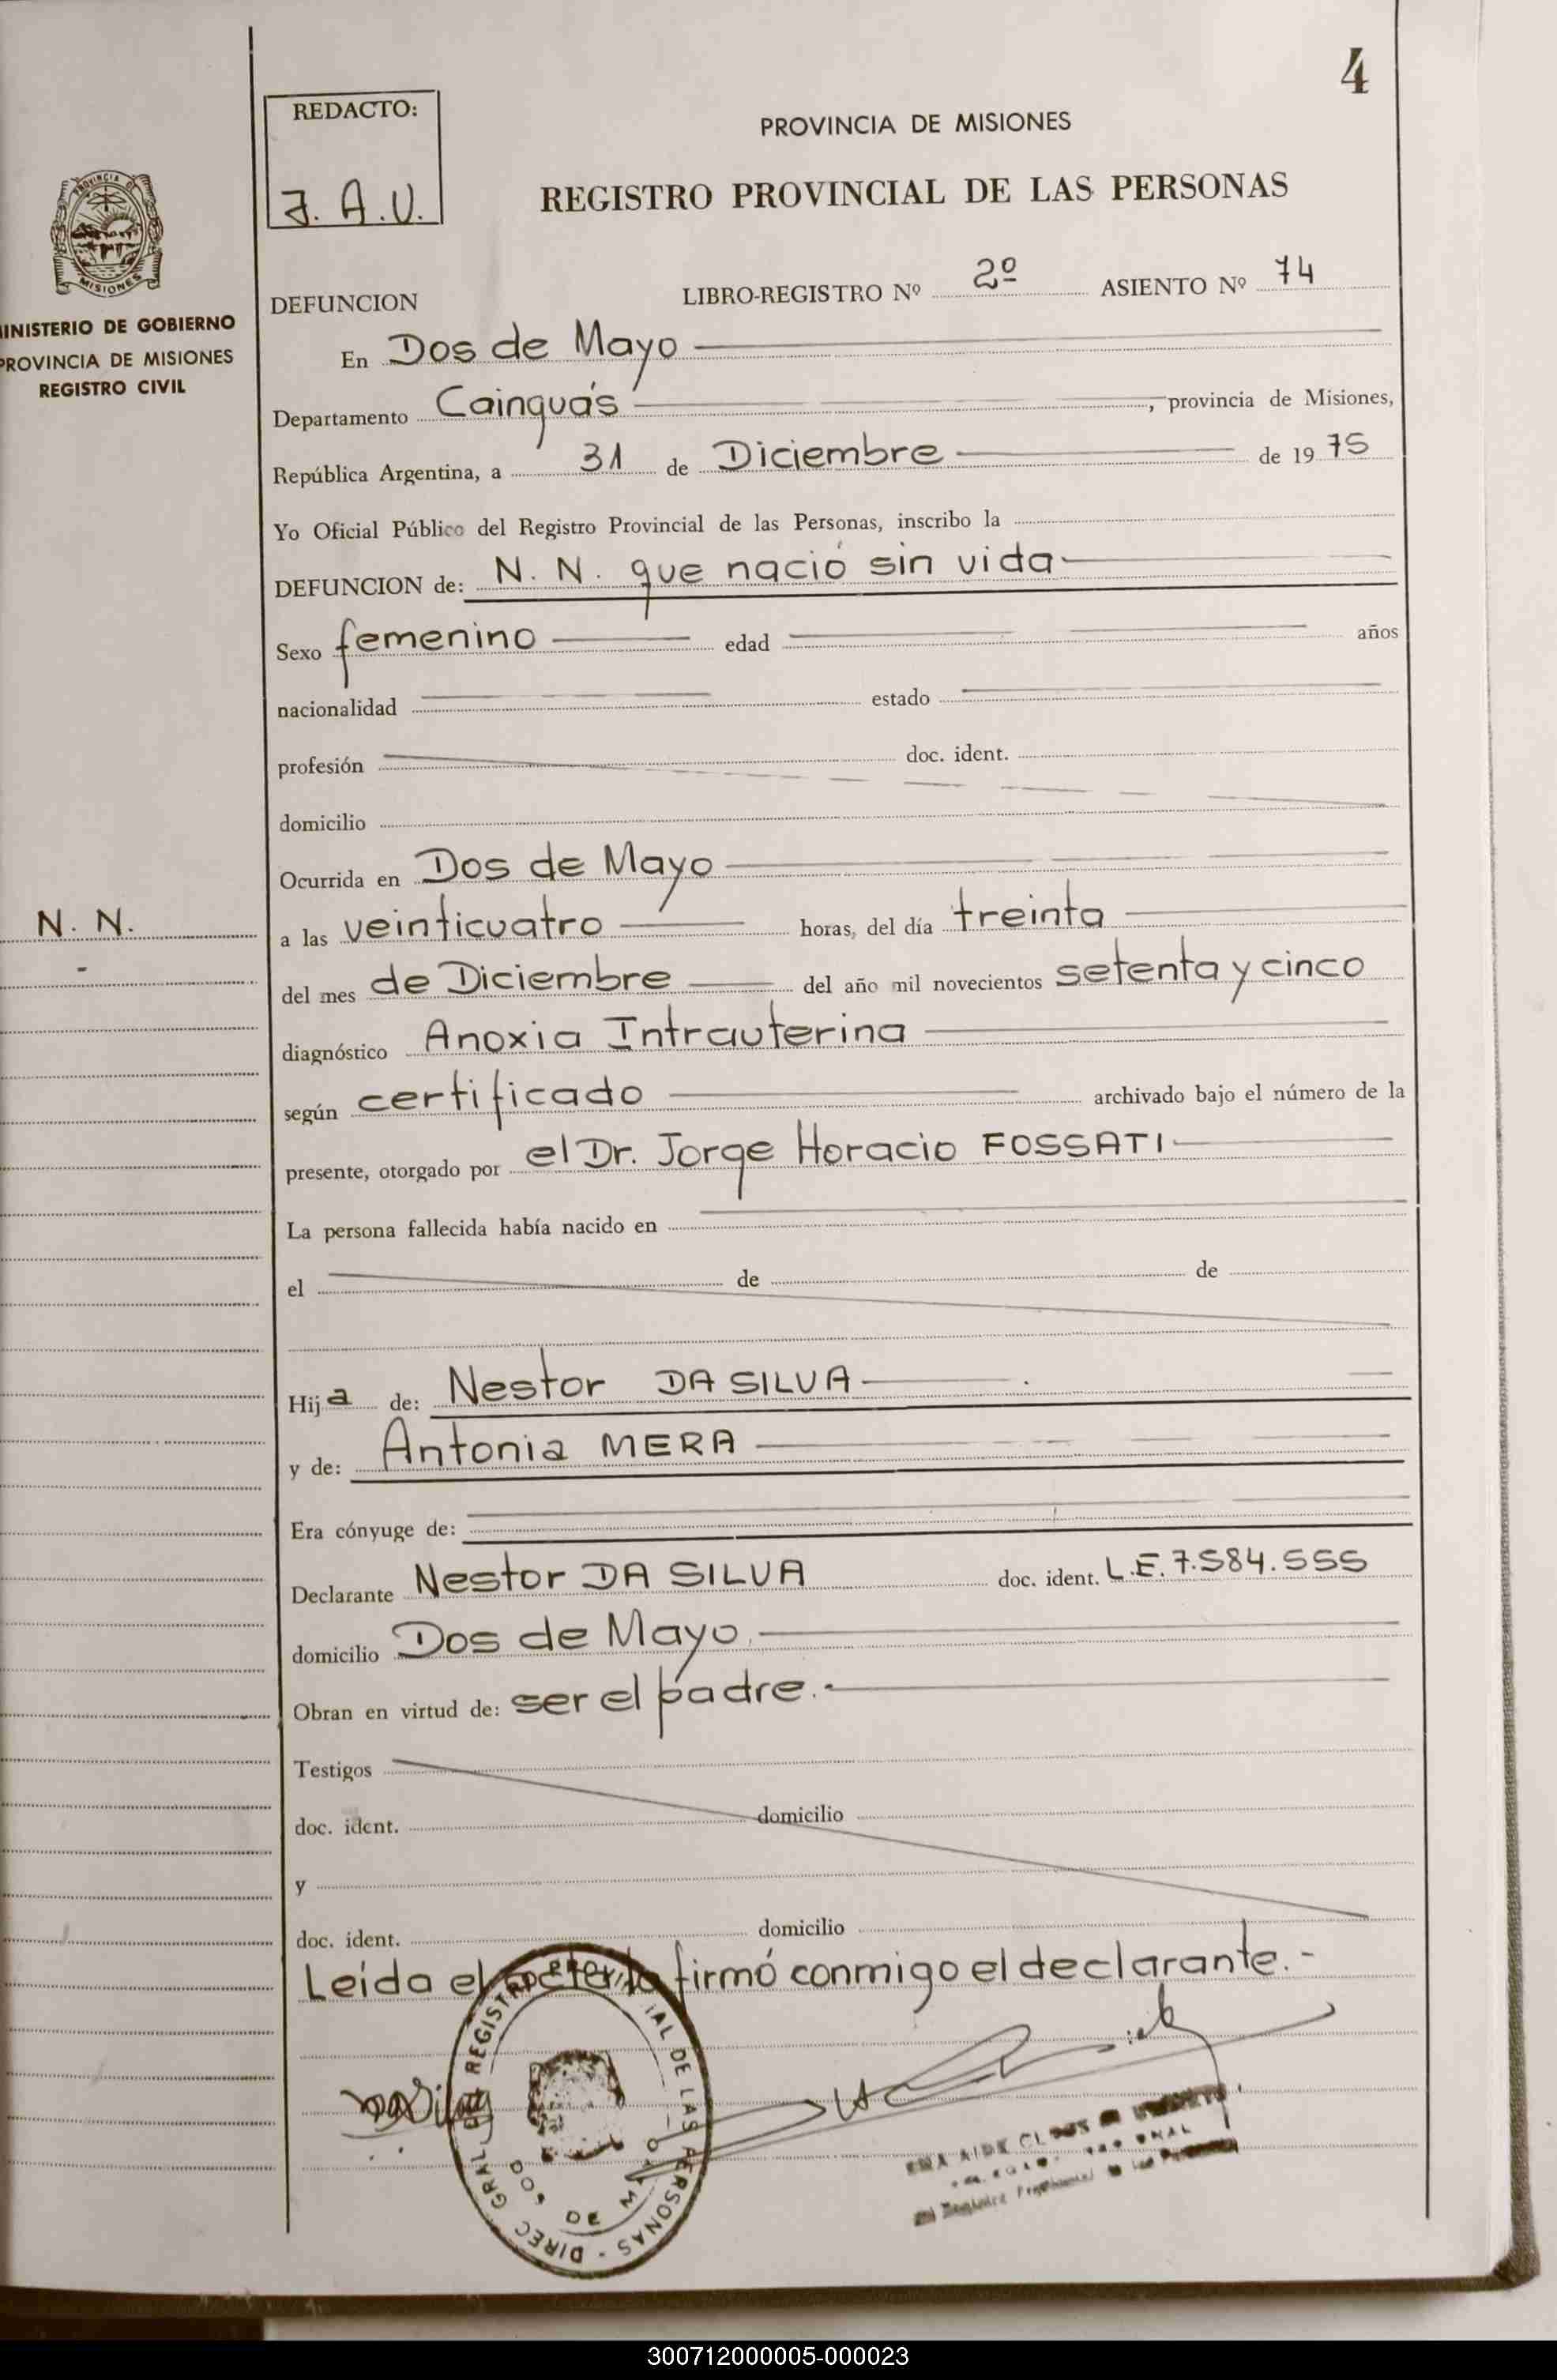 4
REDACTO:
J. A. V.
PROVINCIA DE MISIONES
REGISTRO PROVINCIAL DE LAS PERSONAS
PROVINCIA DE
MISIONES
MINISTERIO DE GOBIERNO
PROVINCIA DE MISIONES
REGISTRO CIVIL
DEFUNCION LIBRO-REGISTRO Nº 2º ASIENTO Nº 74
En Dos de Mayo
Departamento Cainguás, provincia de Misiones,
República Argentina, a 31 de Diciembre de 1975
Yo Oficial Público del Registro Provincial de las Personas, inscribo la
DEFUNCION de: N. N. que nació sin vida
Sexo femenino edad años
nacionalidad estado
profesión doc. ident.
domicilio
Ocurrida en Dos de Mayo
N. N.
a las veinticuatro horas, del día treinta
del mes de Diciembre del año mil novecientos setenta y cinco
diagnóstico Anoxia Intrauterina
según certificado archivado bajo el número de la
presente, otorgado por el Dr. Jorge Horacio FOSSATI
La persona fallecida había nacido en
el de de
Hija de: Nestor DA SILVA
y de: Antonia MERA
Era cónyuge de:
Declarante Nestor DA SILVA doc. ident. L.E. 7.584.555
domicilio Dos de Mayo.
Obran en virtud de: ser el padre.-
Testigos
doc. ident. domicilio
y
doc. ident. domicilio
Leída el acta la firmó conmigo el declarante.-
DIREC. GRAL. DEL REGISTRO PROVINCIAL DE LAS PERSONAS
DOS DE MAYO
300712000005-000023